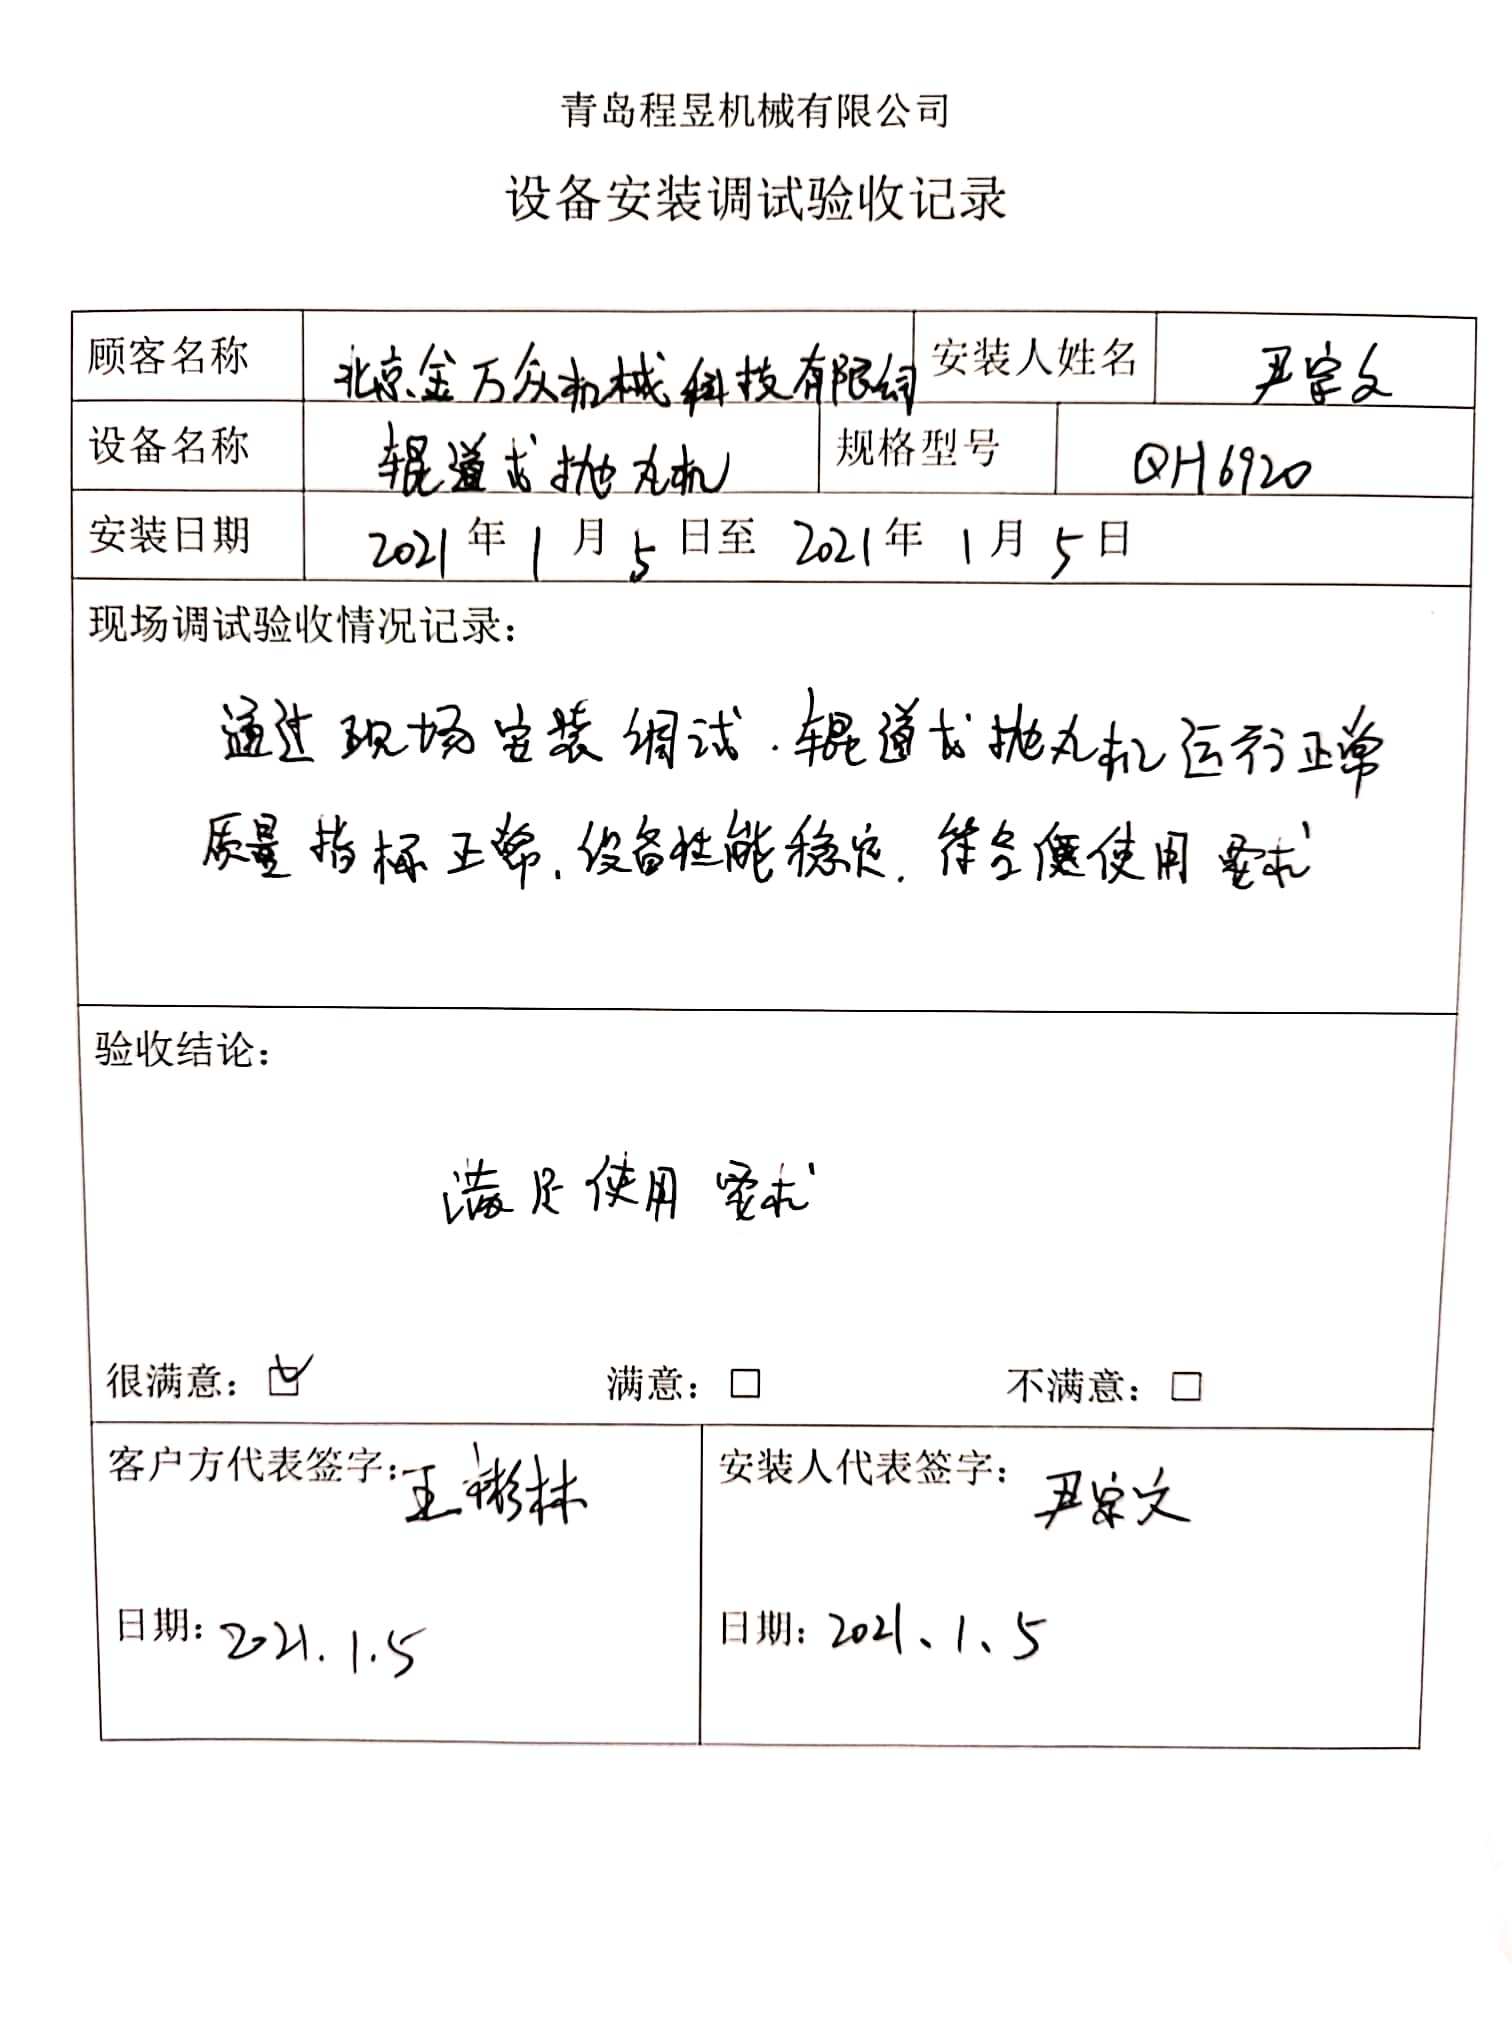 青岛程昱机械有限公司
设备安装调试验收记录
顾客名称 北京金万众机械科技有限公司 安装人姓名 尹宗文
设备名称 辊道式抛丸机 规格型号 QH6920
安装日期 2021年1月5日至2021年1月5日
现场调试验收情况记录：
通过现场安装调试.辊道式抛丸机运行正常
质量指标正常.设备性能稳定.符合使用要求
验收结论：
满足使用要求
很满意：☑ 满意：□ 不满意：□
客户方代表签字：王彬林 安装人代表签字：尹宗文
日期：2021.1.5 日期：2021、1、5